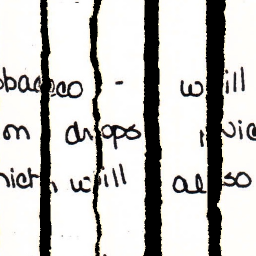 obacco - will
on drops
hich will also